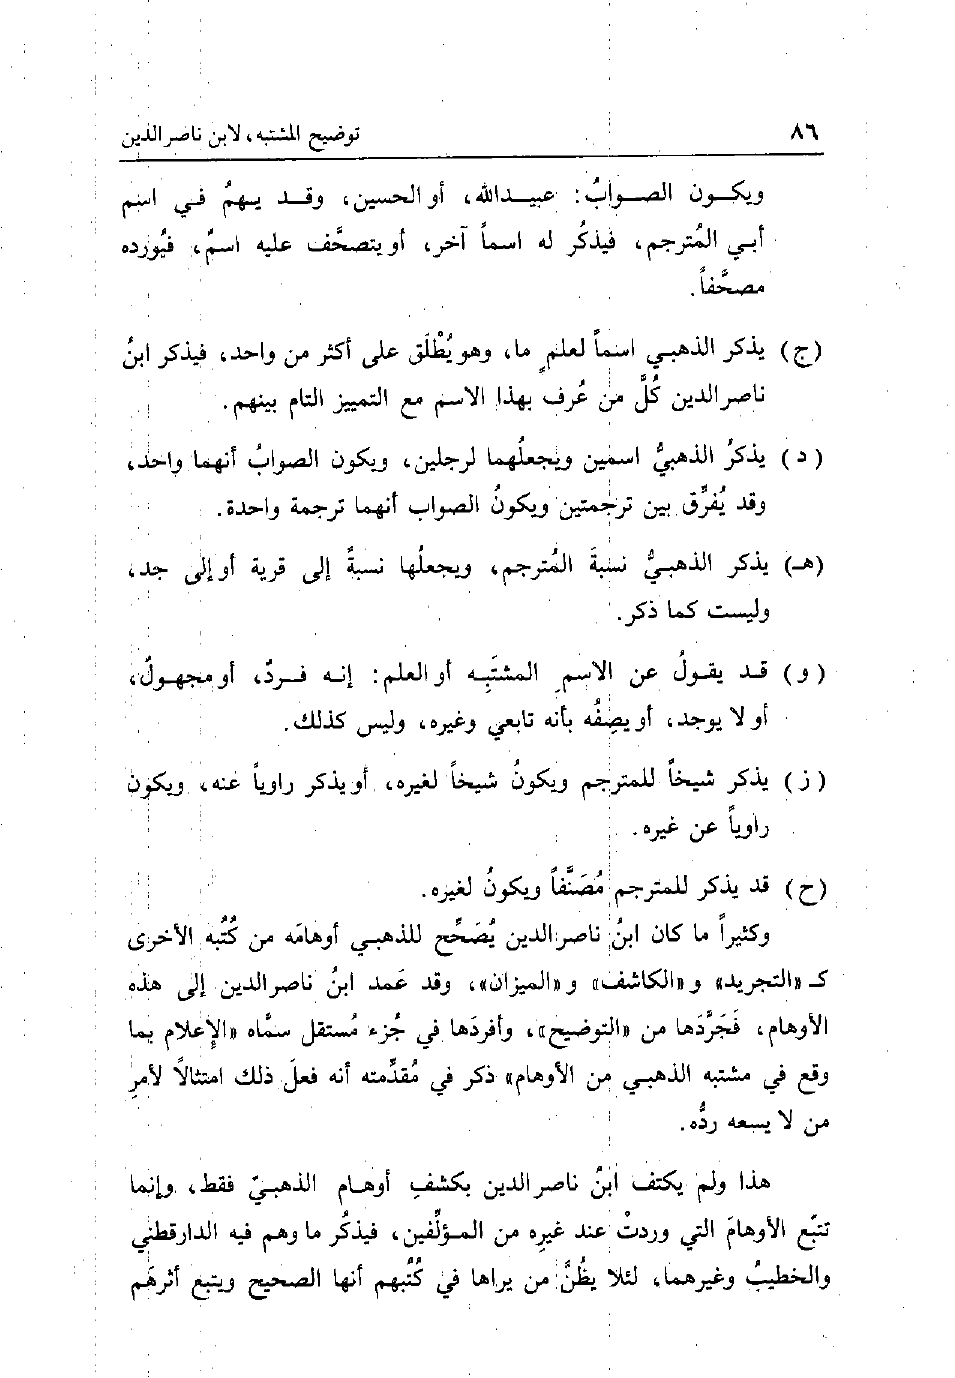 ٨٦
توضيح المشتبه، لابن ناصر الدين
ويكون الصوابُ: عبيدالله، أو الحسين، وقد يهمُ في اسم
أبي المُترجم، فيذكُر له اسماً آخر، أو يتصحَّف عليه اسمٌ، فيُورده
مصحَّفاً.
(ج) يذكر الذهبي اسماً لعلمٍ ما، وهو يُطْلَق على أكثر من واحد، فيذكر ابنُ
ناصر الدين كُلَّ من عُرف بهذا الاسم مع التمييز التام بينهم.
(د) يذكرُ الذهبيُّ اسمين ويجعلُهما لرجلين، ويكون الصوابُ أنهما واحد،
وقد يُفرِّق بين ترجمتين ويكونُ الصواب أنهما ترجمة واحدة.
(هـ) يذكر الذهبيُّ نسبةَ المُترجم، ويجعلُها نسبةً إلى قرية أو إلى جد،
وليست كما ذكر.
(و) قد يقولُ عن الاسمِ المشتَبِه أو العلم: إنه فردٌ، أو مجهولٌ،
أو لا يوجد، أو يصِفُه بأنه تابعي وغيره، وليس كذلك.
(ز) يذكر شيخاً للمترجم ويكونُ شيخاً لغيره، أو يذكر راوياً عنه، ويكون
راوياً عن غيره.
(ح) قد يذكر للمترجم مُصَنَّفاً ويكونُ لغيره.
وكثيراً ما كان ابنُ ناصر الدين يُصَحِّح للذهبي أوهامَه من كُتُبه الأخرى
كـ «التجريد» و «الكاشف» و «الميزان»، وقد عَمد ابنُ ناصر الدين إلى هذه
الأوهام، فَجَرَّدَها من «التوضيح»، وأفردَها في جُزء مُستقل سمَّاه «الإعلام بما
وقع في مشتبه الذهبي من الأوهام» ذكر في مُقدِّمته أنه فعلَ ذلك امتثالاً لأمرِ
من لا يسعه ردُّه.
هذا ولم يكتف ابنُ ناصر الدين بكشفِ أوهام الذهبيّ فقط، وإنما
تتبّع الأوهامَ التي وردتْ عند غيرِه من المؤلِّفين، فيذكُر ما وهم فيه الدارقطني
والخطيبُ وغيرهما، لئلا يظُنَّ من يراها في كُتُبهم أنها الصحيح ويتبع أثرهَم